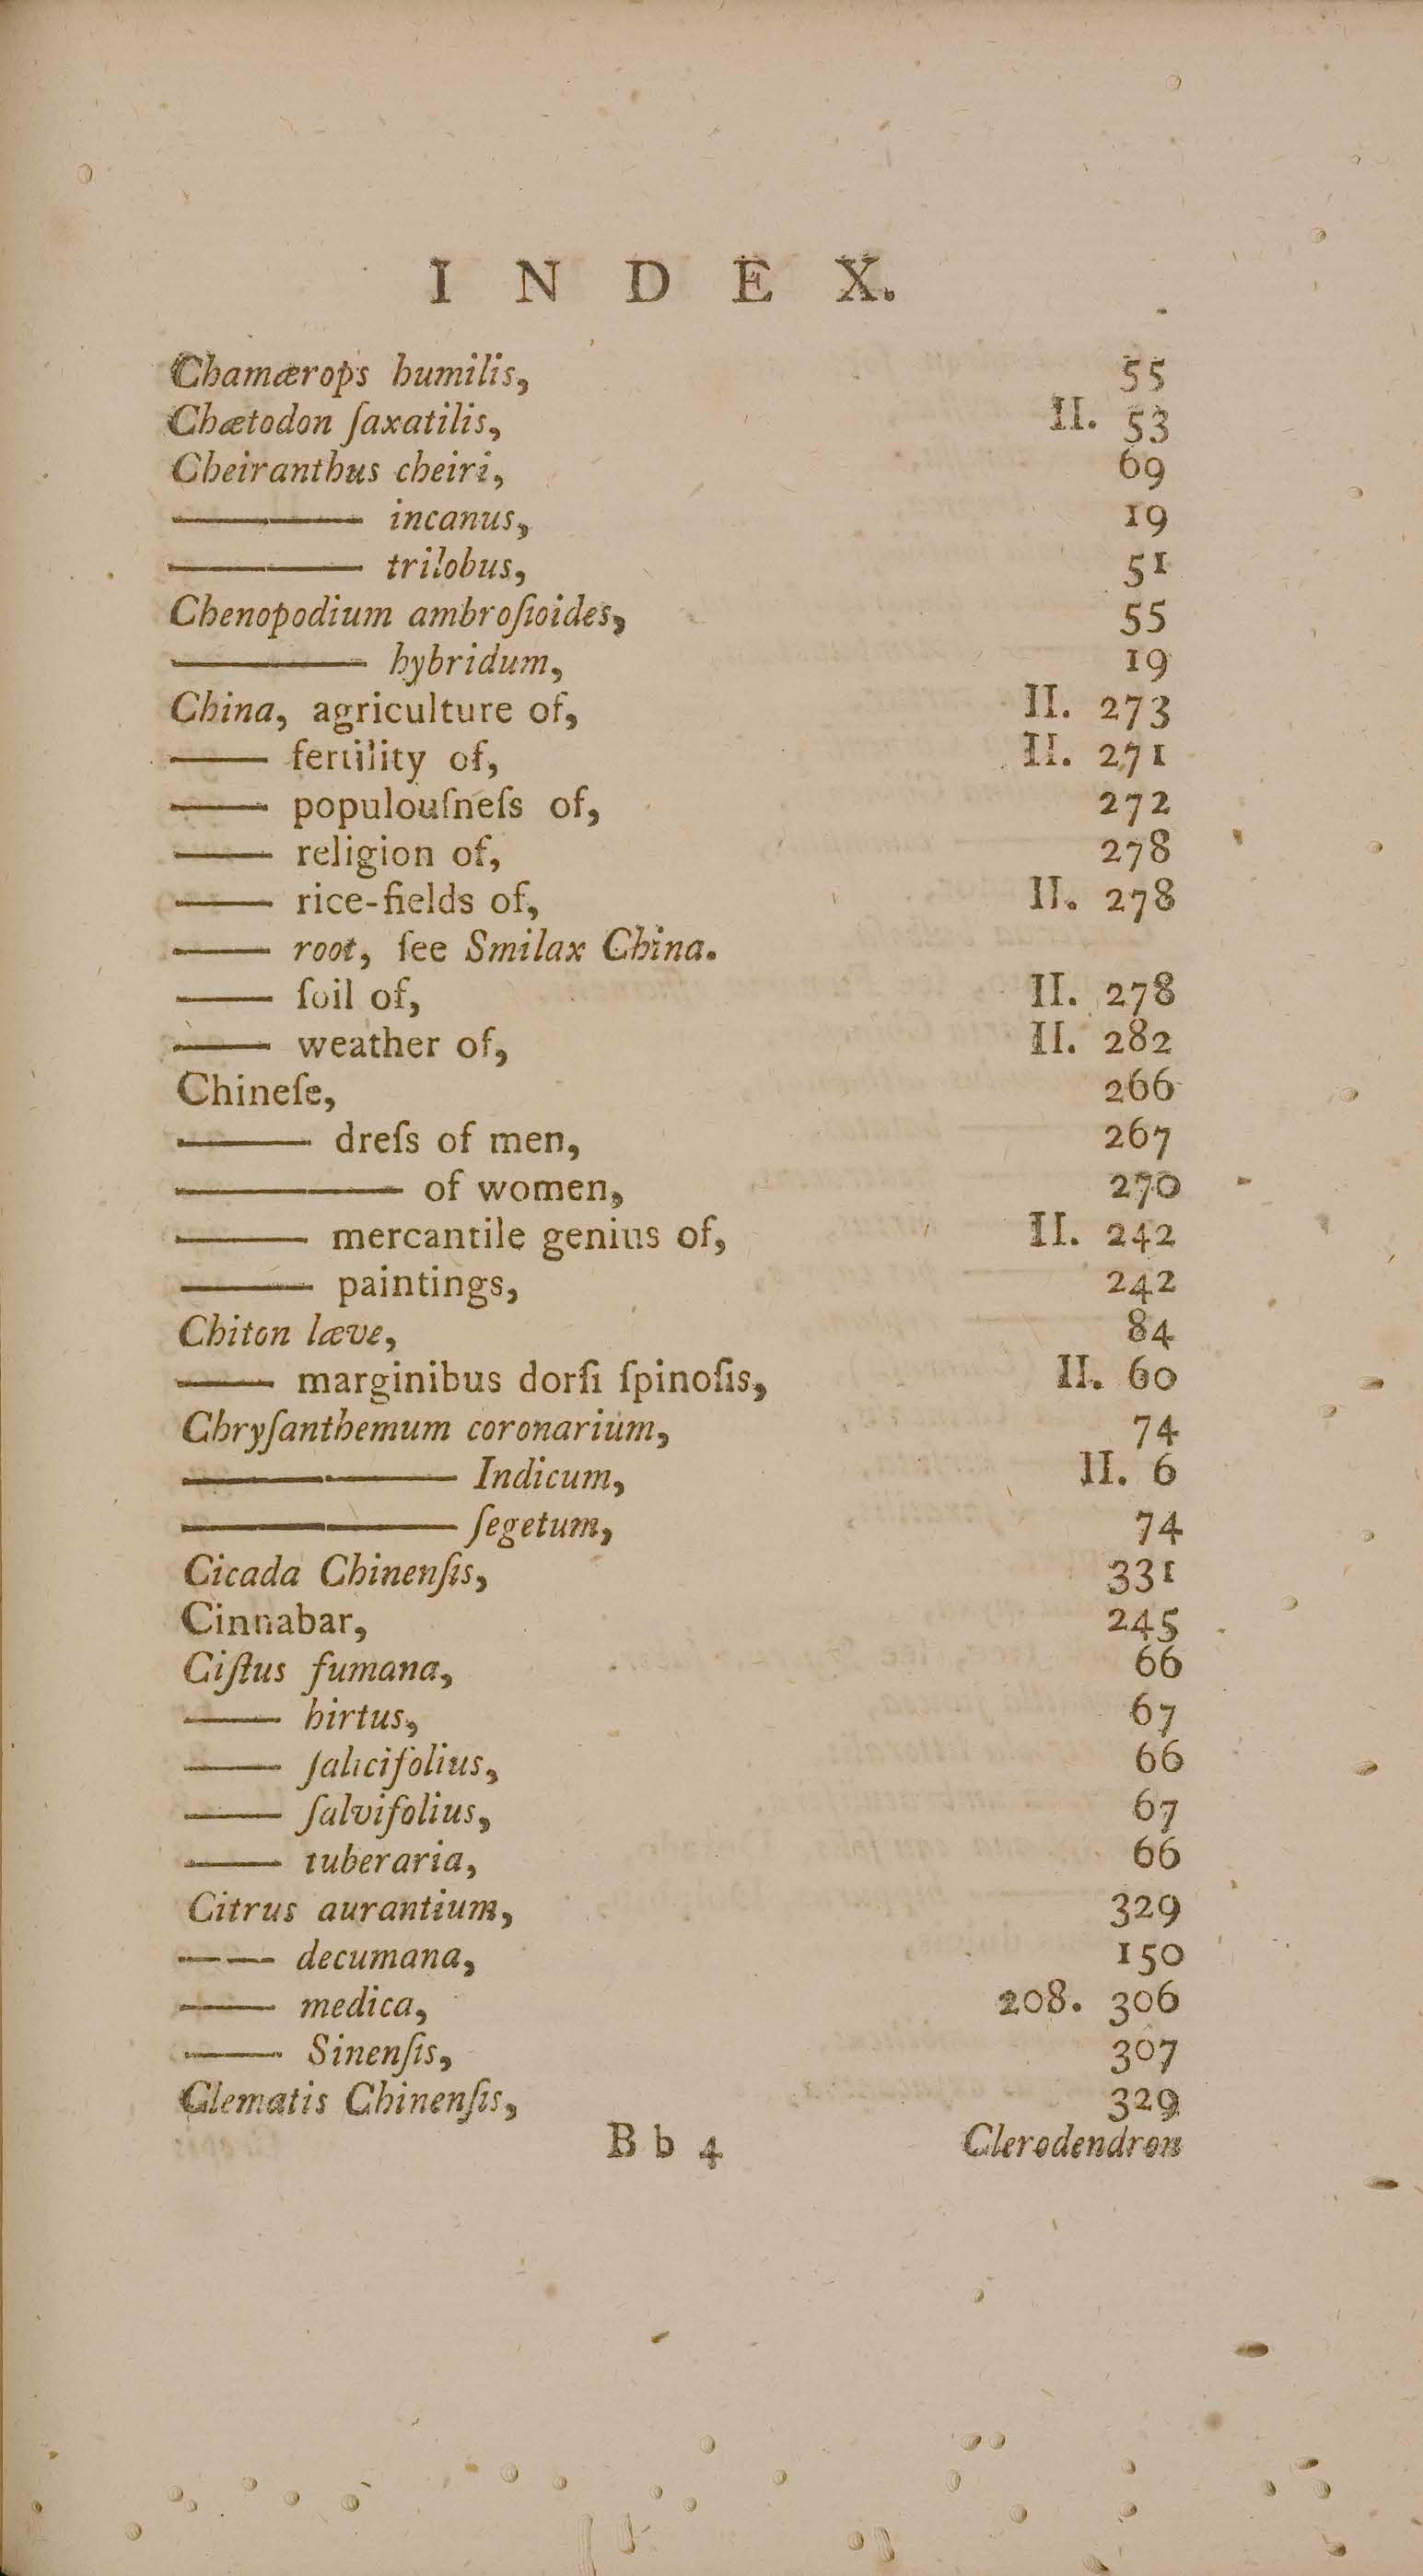 I N D E X.
Chamærops humilis, 55
Chætodon ſaxatilis, II. 53
Cheiranthus cheiri, 69
——— incanus, 19
——— trilobus, 51
Chenopodium ambroſioides, 55
——— hybridum, 19
China, agriculture of, II. 273
—— fertility of, II. 271
—— populouſneſs of, 272
—— religion of, 278
—— rice-fields of, II. 278
—— root, ſee Smilax China.
—— ſoil of, II. 278
—— weather of, II. 282
Chineſe, 266
——— dreſs of men, 267
————— of women, 270
——— mercantile genius of, II. 242
——— paintings, 242
Chiton læve, 84
—— marginibus dorſi ſpinoſis, II. 60
Chryſanthemum coronarium, 74
————— Indicum, II. 6
————— ſegetum, 74
Cicada Chinenſis, 331
Cinnabar, 245
Ciſtus fumana, 66
—— hirtus, 67
—— ſalicifolius, 66
—— ſalvifolius, 67
—— tuberaria, 66
Citrus aurantium, 329
—— decumana, 150
—— medica, 208. 306
—— Sinenſis, 307
Clematis Chinenſis, 329
B b 4 Clerodendron